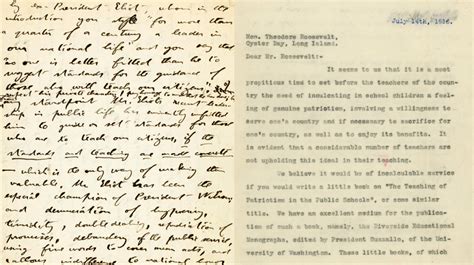 by President Eliot, whom in the
introduction you style "for more than
a quarter of a century a leader in
our national life" and you say that
no one is better fitted than he to
suggest standards for the guidance of
those who with teach our citizens"
standpoint Mr. Eliot's
ship in public life has unfitted
him to guide or set standards for those
who are to teach our citizens, if the
standards and teaching are made
— which is the only way of making them
valuable. Mr. Eliot has been the
special champion of President Wilson,
and denunciation of hypocrisy,
timidity, double dealing, repudiation of
promises, of the public service,
using fine words to cover mean acts, and
to national honor
July 14th, 1916.
Hon. Theodore Roosevelt,
Oyster Bay, Long Island.
Dear Mr. Roosevelt:-
It seems to us that it is a most
propitious time to set before the teachers of the coun-
try the need of inculcating in school children a feel-
ing of genuine patriotism, involving a willingness to
serve one's country and if necessary to sacrifice for
one's country, as well as to enjoy its benefits. It
is evident that a considerable number of teachers are
not upholding this ideal in their teaching.
We believe it would be of incalculable service
if you would write a little book on "The Teaching of
Patriotism in the Public Schools", or some similar
title. We have an excellent medium for the publica-
tion of such a book, namely, the Riverside Educational
Monographs, edited by President Suzzallo, of the Uni-
versity of Washington. These little books, of which